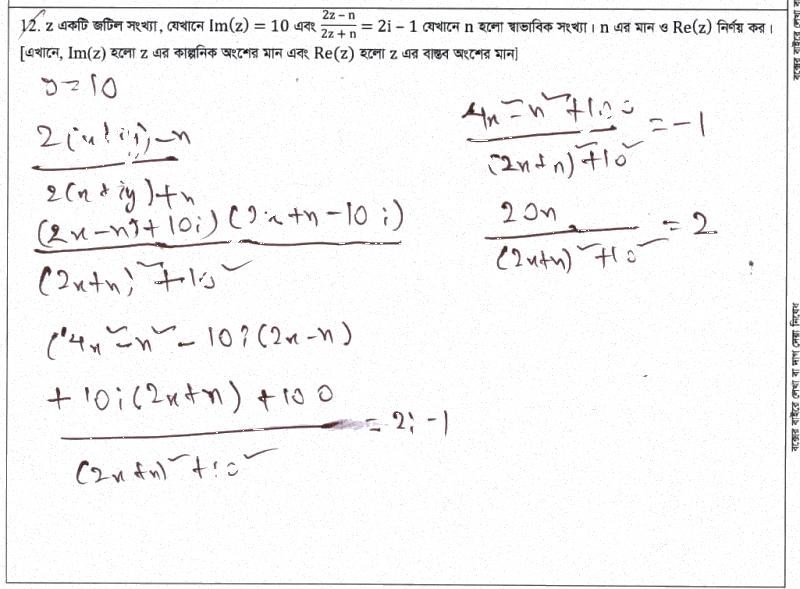 12. z একটি জটিল সংখ্যা, যেখানে Im(z) = 10 এবং (2z − n)/(2z + n) = 2i − 1 যেখানে n হলো স্বাভাবিক সংখ্যা। n এর মান ও Re(z) নির্ণয় কর।
[এখানে, Im(z) হলো z এর কাল্পনিক অংশের মান এবং Re(z) হলো z এর বাস্তব অংশের মান]
y = 10
2(x+iy) − n
2(x + iy) + n
(2x − n + 10i) (2x + n − 10i)
(2x+n)² + 10²
(4x² − n² − 10i(2x − n)
+ 10i(2x+n) + 100
= 2i − 1
(2x+n)² + 10²
4x² − n² + 100
= −1
(2x+n)² + 10²
20n
= 2
(2x+n)² + 10²
বক্সের বাইরে লেখা বা দাগ দেয়া নিষেধ